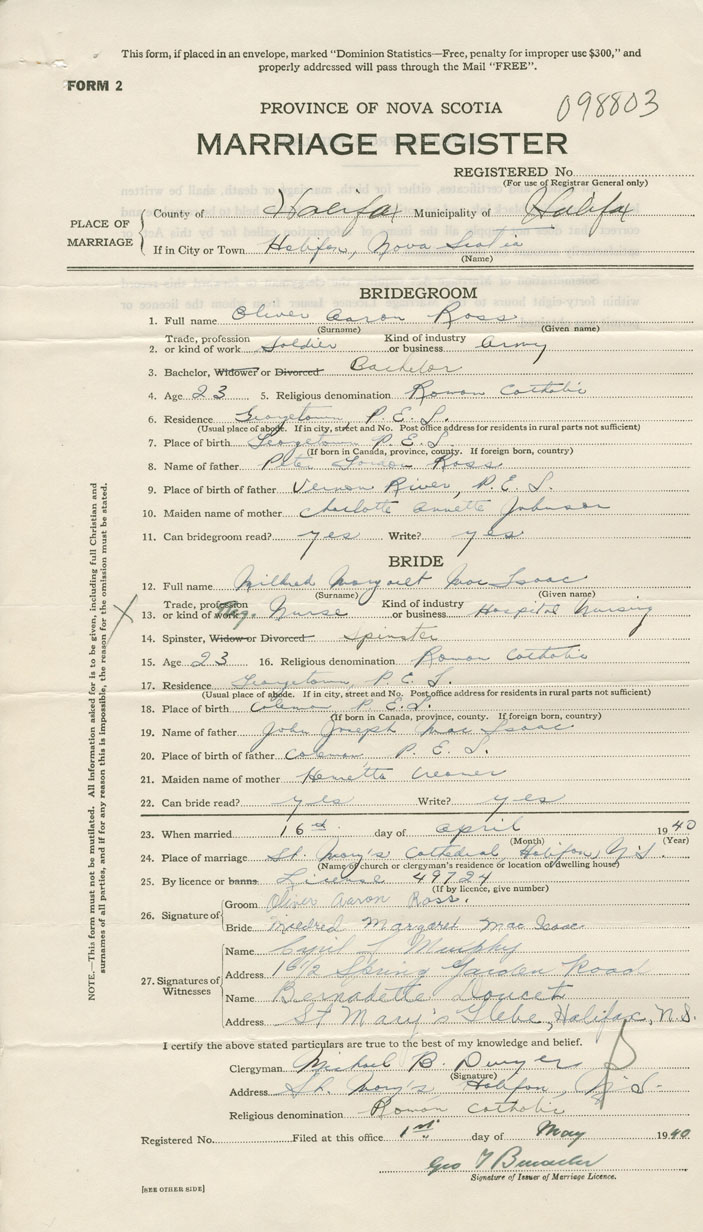 This form, if placed in an envelope, marked "Dominion Statistics—Free, penalty for improper use $300," and
properly addressed will pass through the Mail "FREE".
FORM 2
PROVINCE OF NOVA SCOTIA
098803
MARRIAGE REGISTER
REGISTERED No.
(For use of Registrar General only)
PLACE OF MARRIAGE
County of Halifax Municipality of Halifax
If in City or Town Halifax, Nova Scotia
(Name)
BRIDEGROOM
1. Full name Oliver Aaron Ross
(Surname) (Given name)
2. Trade, profession or kind of work Soldier Kind of industry or business Army
3. Bachelor, Widower or Divorced Bachelor
4. Age 23 5. Religious denomination Roman Catholic
6. Residence Georgetown, P.E.I.
(Usual place of abode. If in city, street and No. Post office address for residents in rural parts not sufficient)
7. Place of birth Georgetown P.E.I.
(If born in Canada, province, county. If foreign born, country)
8. Name of father Peter Ross
9. Place of birth of father Vernon River, P.E.I.
10. Maiden name of mother Charlotte Annette Johnson
11. Can bridegroom read? yes Write? yes
BRIDE
12. Full name Mildred Margaret Mac Isaac
(Surname) (Given name)
13. Trade, profession or kind of work Reg. Nurse Kind of industry or business Hospital Nursing
14. Spinster, Widow or Divorced Spinster
15. Age 23 16. Religious denomination Roman Catholic
17. Residence Georgetown, P.E.I.
(Usual place of abode. If in city, street and No. Post office address for residents in rural parts not sufficient)
18. Place of birth Coleman P.E.I.
(If born in Canada, province, county. If foreign born, country)
19. Name of father John Joseph Mac Isaac
20. Place of birth of father Coleman, P.E.I.
21. Maiden name of mother Henrietta
22. Can bride read? yes Write? yes
23. When married 16th day of April 1940
(Month) (Year)
24. Place of marriage St. Mary's Cathedral, Halifax, N.S.
(Name of church or clergyman's residence or location of dwelling house)
25. By licence or banns License 49724
(If by licence, give number)
26. Signature of
Groom Oliver Aaron Ross.
Bride Mildred Margaret Mac Isaac
27. Signatures of Witnesses
Name Cyril L Murphy
Address 16½ Spring Garden Road
Name Bernadette Doucet
Address St Mary's Glebe, Halifax, N.S.
I certify the above stated particulars are true to the best of my knowledge and belief.
Clergyman Michael B. Dwyer
(Signature)
Address St. Mary's, Halifax, N.S.
Religious denomination Roman Catholic
Registered No. Filed at this office 1st day of May 1940
Geo
Signature of Issuer of Marriage Licence.
[SEE OTHER SIDE]
NOTE.—This form must not be mutilated. All information asked for is to be given, including full Christian and
surnames of all parties, and if for any reason this is impossible, the reason for the omission must be stated.
X